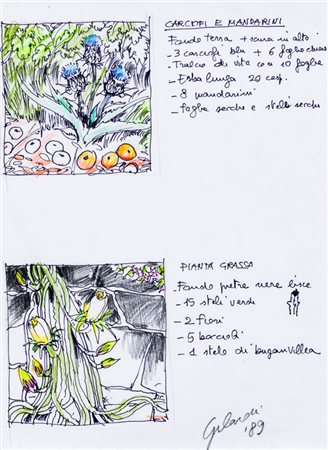 CARCIOFI E MANDARINI
Fondo terra + scura in alto
- 3 carciofi blu + 6 foglie
- Tralcio di vite con 10 foglie
- Erba lunga 20 cesp.
- 8 mandarini
- foglie secche e steli secchi
PIANTA GRASSA
Fondo pietre nere lisce
- 15 steli verdi
- 2 fiori
- 5 boccioli
- 1 stelo di buganvillea
Gilardi
'89